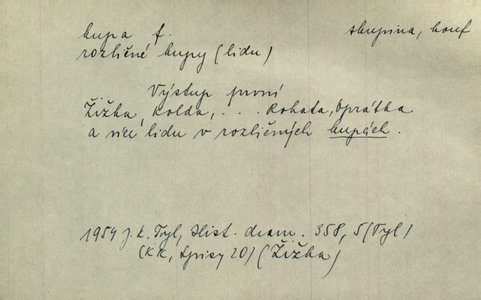 kupa f. skupina, houf
rozličné kupy (lidu)
Výstup první
Žižka, Kolda, . . . Rohata, Oprátka
a více lidu v rozličných kupách.
1954 J. K. Tyl, Hist. dram. 358, 5 (Tyl)
(KK, Spisy 20) (Žižka)